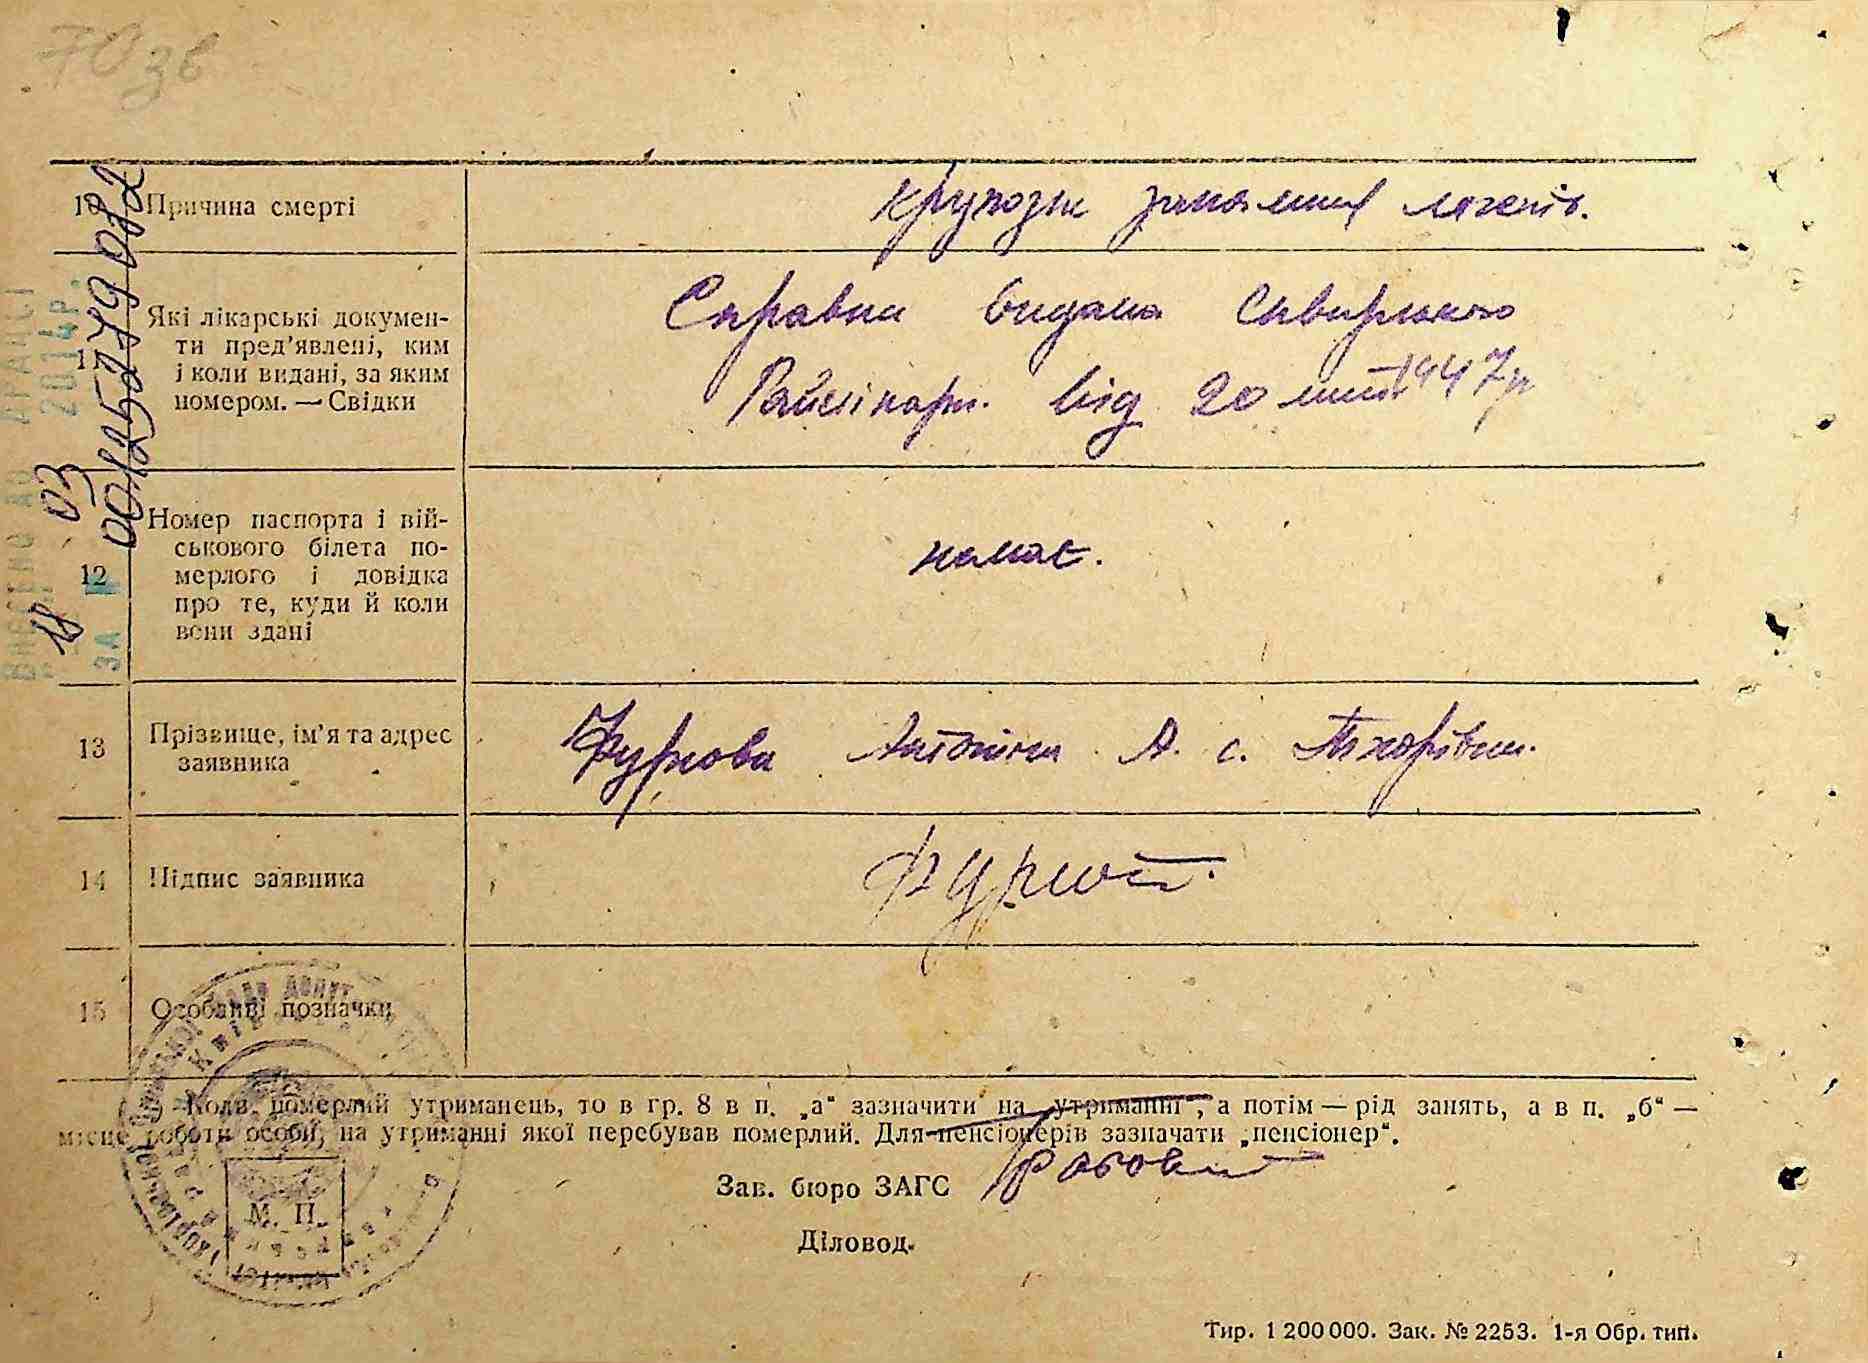 70зв
10 Причина смерті
крупозне запалення легенів.
11 Які лікарські докумен-
ти пред'явлені, ким
і коли видані, за яким
номером. — Свідки
Справка видана Сквирською
Райлікарн. від 20 1947р
12 Номер паспорта і вій-
ськового білета по-
мерлого і довідка
про те, куди й коли
вони здані
немає.
13 Прізвище, ім'я та адрес
заявника
Фурсова Антоніна А. с. Тхорівка.
14 Підпис заявника
15 Особливі позначки
Коли померлий утриманець, то в гр. 8 в п. „а" зазначити на утриманні", а потім — рід занять, а в п. „б" —
місце роботи особи, на утриманні якої перебував померлий. Для пенсіонерів зазначати „пенсіонер".
Зав. бюро ЗАГС
М. П.
Діловод.
Тир. 1 200 000. Зак. № 2253. 1-я Обр. тип.
ВНЕСЕНО ДО ДРАЦСГ
18 03 2014р.
ЗА № 00125279082